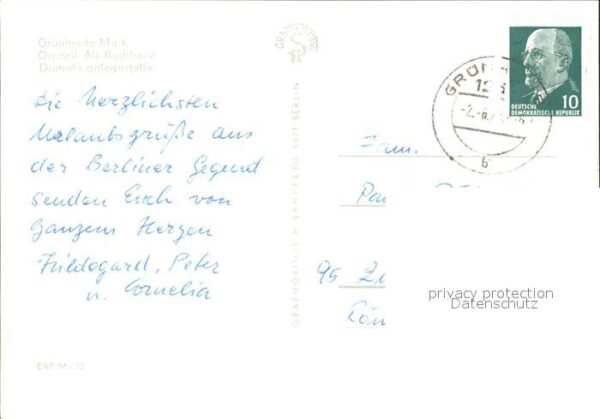 Grünheide Mark
Ortsteil Alt-Buchhorst
Dampferanlegestelle
GRAPHOKOPIE
Die Herzlichsten
Urlaubsgrüße aus
der Berliner Gegend
senden Euch von
Ganzem Herzen
Hildegard, Peter
u. Cornelia
GRAPHOKOPIE H. SANDER KG 1071 BERLIN
GRÜN
126
b
DEUTSCHE
DEMOKRATISCHE REPUBLIK
10
Fam.
95
privacy protection
Datenschutz
EVP M -,22